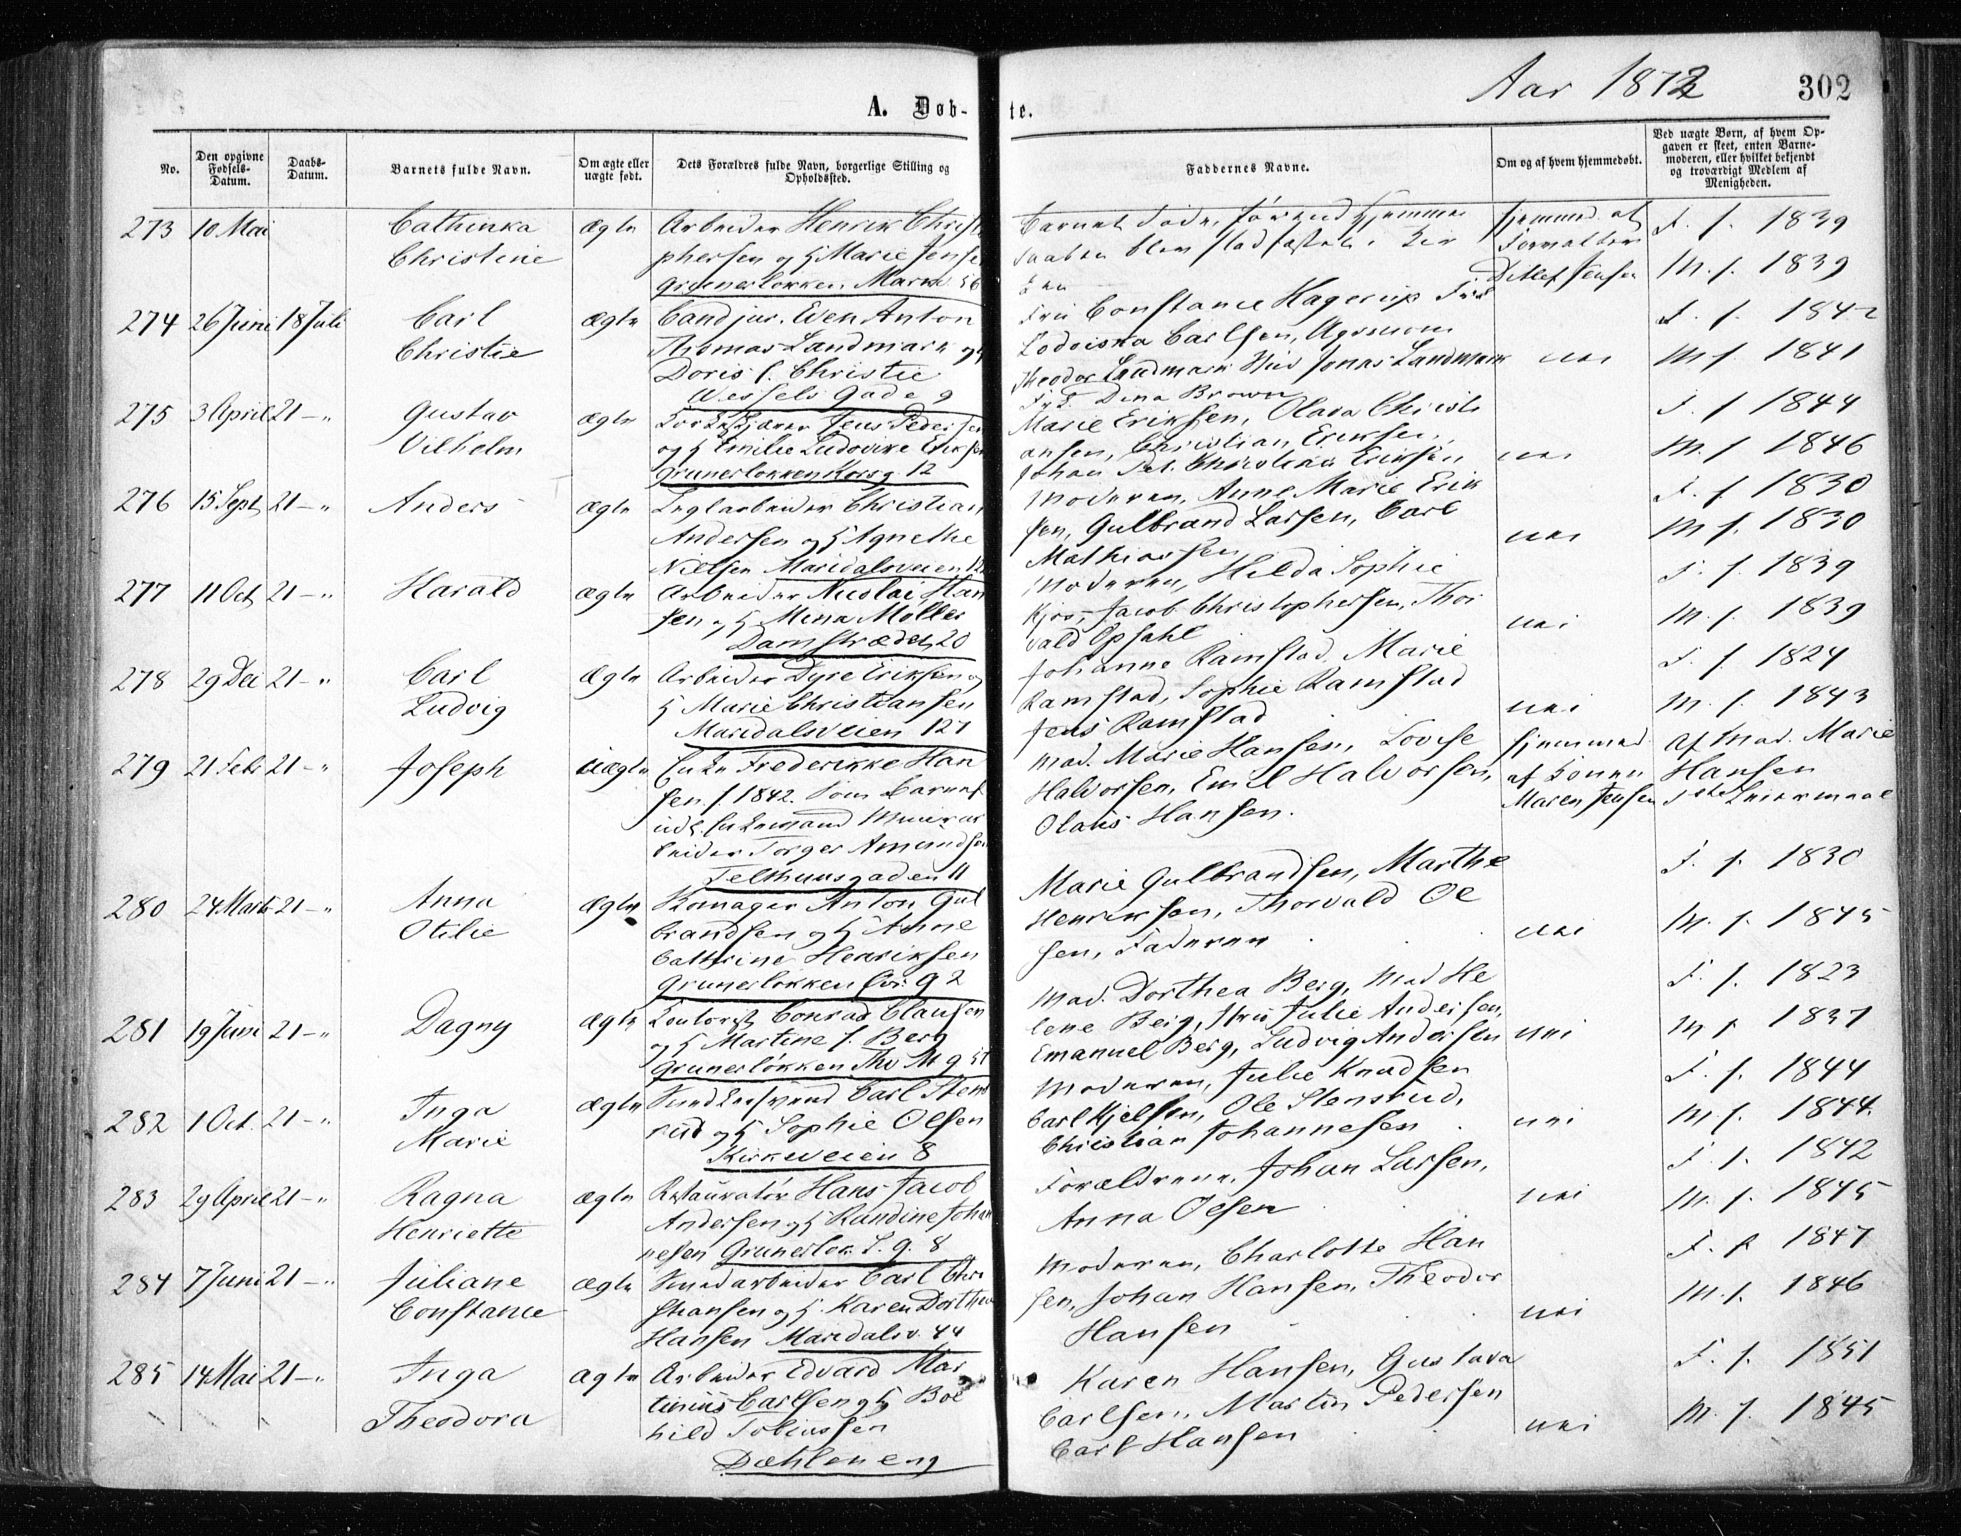 Aar 1872
302
A. Døb-
te.
No.
Den opgivne Fødsels-Datum.
Daabs-Datum.
Barnets fulde Navn.
Om ægte eller uægte født.
Dets Forældres fulde Navn, borgerlige Stilling og Opholdssted.
Faddernes Navne.
Om og af hvem hjemmedøbt.
Ved uægte Børn, af hvem Op-
gaven er skeet, enten Barne-
moderen, eller hvilket bekjendt
og troværdigt Medlem af
Menigheden.
273 10 Mai Cathinka Christine ægte
Arbeider Henrik Christo
phersen og H Marie Jense
Grünerløkken Markv 56
hjemmed. af
Ditlef Jensen
F. f. 1839
M. f. 1839
274 26 Juni 18 Juli Carl Christie ægte
Cand jur. Even Anton
Thomas Landmark og H
Doris C. Christie
Wessels Gade 9
Fru Constance Hagerup Frk
Lodviska Carlsen, Agronom
Theodor Landmark Stud Jonas Landmark
Frk. Dina Brown
nei
F. f. 1842
M f. 1841
275 3 April 21 - " Gustav Vilhelm ægte
Jens Peders
og H Emilie Ludovike Eriksen
Grünerløkken Korsg. 12
Marie Eriksen, Olava Christi
ansen, Christian Eriksen,
Johan Pet. Christian Eriksen
nei
F. f 1844
M. f 1846
276 15 Sept 21 - " Anders ægte
Teglarbeider Christian
Andersen og H Agnethe
Nielsen Maridalsveien
Moderen, Anne Marie Erik
sen, Gulbrand Larsen, Carl
Mathiassen
nei
F. f 1830
M f. 1830
277 11 Oct 21 - " Harald ægte
Arbeider Nicolai Han
sen og H Mina Møller
Damstrædet 20
Moderen, Hilda Sophie
Kjos, Jacob Christophersen, Thor
vald Opsahl
nei
F. f. 1839
M. f. 1839
278 29 Dec 21 - " Carl Ludvig ægte
Arbeider Dyre Eriksen og
H Marie Christiansen
Maridalsveien 121
Johanne Ramstad, Marie
Ramstad, Sophie Ramstad
Jens Ramstad
nei
F. f. 1824
M. f. 1843
279 21 Febr 21 - " Joseph uægte
Enke Frederikke Han
sen. f. 1842. Som Barnef
udl. Enkemand Murar
beider Torger Amundsen
Telthuusgaden 11
Mad. Marie Hansen, Lovise
Halvorsen, Emil Halvorsen,
Olaus Hansen.
hjemmed.
af Konen
Maren Jensen
af Mad. Marie
Hansen
1ste Leiermaal
280 24 Marts 21 - " Anna Otilie ægte
Skomager Anton Gul
brandsen og H Anne
Cathrine Henriksen
Grünerløkken
Marie Gulbrandsen, Marthe
Henriksen, Thorvald Ol
sen, Faderen
nei
F. f. 1830
M. f. 1845
281 19 Juni 21 - " Dagny ægte
Kontorist Conrad Clausen
og H Martine f. Berg
Grünerløkken Thv M g 51
Mad. Dorthea Berg, Mad He
lene Berg, Fru Julie Andersen,
Emanuel Berg, Ludvig Andersen
nei
F. f. 1823
M f 1837
282 1 Oct. 21 - " Inga Marie ægte
Snedkersvend Carl Stens
rud og H Sophie Olsen
Kirkeveien 8
Moderen, Julie Knudsen
Carl Kjelsen, Ole Stensrud,
Christian Johannesen
nei
F. f. 1844
M. f. 1844.
283 29 April 21 - " Ragna Henriette ægte
Restauratør Hans Jacob
Andersen og H Randine Johan
nesen Grünerløk. T. g. 8
Forældrene, Johan Larsen,
Anna Olsen
nei
F. f. 1842
M. f. 1845
284 7 Juni 21 - " Juliane Constance ægte
Smedarbeider Carl Chri
stiansen og H. Karen Dorthea
Hansen Maridalsv. 44
Moderen, Charlotte Han
sen, Johan Hansen, Theodor
Hansen
nei
F. f 1847
M. f. 1846
285 14 Mai 21 - " Inga Theodora ægte
Arbeider Edvard Mar
tinius Carlsen og H Bol
hild Tobiassen
Dæhleneng
Karen Hansen, Gustava
Carlsen, Martin Pedersen
Carl Hansen
nei
F. f. 1851
M. f. 1845